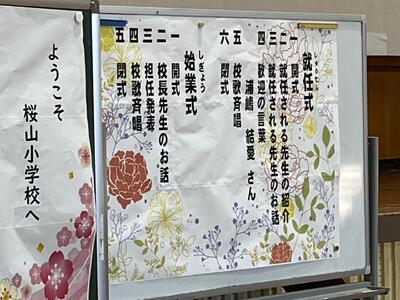 就任式
しゅうにん
一 開式
二 就任される先生の紹介
三 就任される先生のお話
四 歓迎の言葉
浦嶋 結愛 さん
五 校歌斉唱
六 閉式
始業式
しぎょう
一 開式
二 校長先生のお話
三 担任発表
四 校歌斉唱
五 閉式
ようこそ
桜山小学校へ